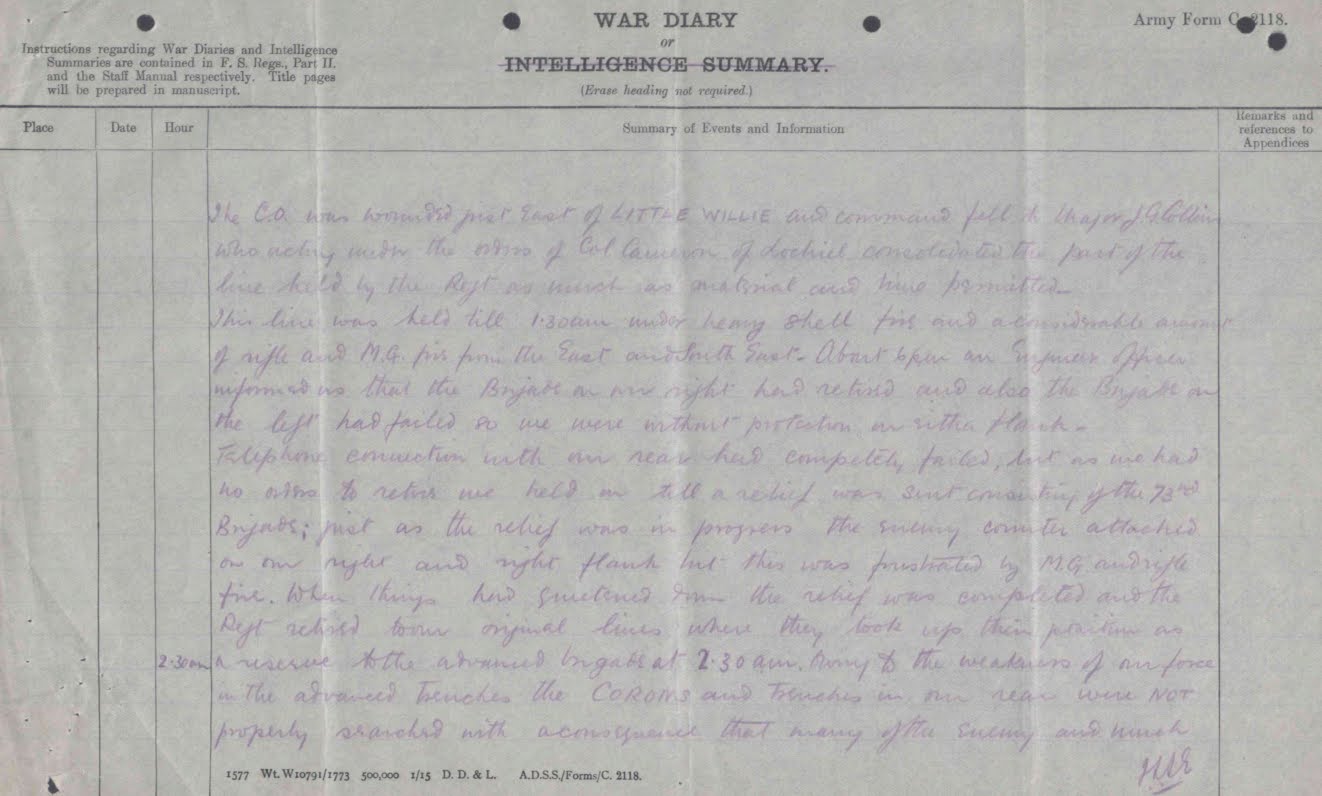 WAR DIARY
or
INTELLIGENCE SUMMARY.
(Erase heading not required.)
Army Form C. 2118.
Instructions regarding War Diaries and Intelligence
Summaries are contained in F. S. Regs., Part II.
and the Staff Manual respectively. Title pages
will be prepared in manuscript.
Place
Date
Hour
Summary of Events and Information
Remarks and
references to
Appendices
The C.O. was wounded just East of LITTLE WILLIE and command fell to Major J.G. Collins
who acting under the orders of Col Cameron of Lochiel consolidated the part of the
line held by the Regt as much as material and time permitted.
This line was held till 1.30am under heavy shell fire and a considerable amount
of rifle and M.G. fire from the East and South East. About 6pm an Engineer officer
informed us that the Brigade on our right had retired and also the Brigade on
the left had failed so we were without protection on either flank.
Telephone connection with our rear had completely failed, but as we had
no orders to retire we held on till a relief was sent consisting of the 73rd
Brigade; just as the relief was in progress the enemy counter attacked
on our right and right flank but this was frustrated by M.G. and rifle
fire. When things had quietened down the relief was completed and the
Regt retired to our original lines where they took up their position as
2.30am a reserve to the advanced brigade at 2.30 am. Owing to the weakness of our force
in the advanced trenches the CORONS and trenches in our rear were NOT
properly searched with a consequence that many of the enemy and much
1577 Wt. W10791/1773 500,000 1/15 D. D. & L. A.D.S.S./Forms/C. 2118.